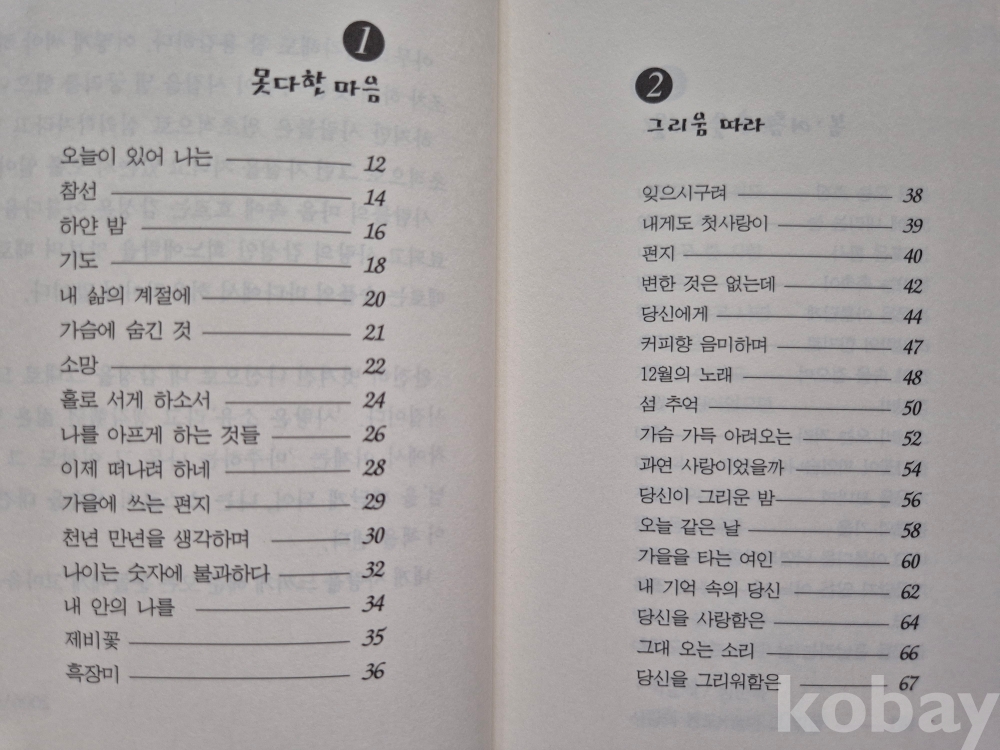 1
못다한 마음
오늘이 있어 나는 12
참선 14
하얀 밤 16
기도 18
내 삶의 계절에 20
가슴에 숨긴 것 21
소망 22
홀로 서게 하소서 24
나를 아프게 하는 것들 26
이제 떠나려 하네 28
가을에 쓰는 편지 29
천년 만년을 생각하며 30
나이는 숫자에 불과하다 32
내 안의 나를 34
제비꽃 35
흑장미 36
2
그리움 따라
잊으시구려 38
내게도 첫사랑이 39
편지 40
변한 것은 없는데 42
당신에게 44
커피향 음미하며 47
12월의 노래 48
섬 추억 50
가슴 가득 아려오는 52
과연 사랑이었을까 54
당신이 그리운 밤 56
오늘 같은 날 58
가을을 타는 여인 60
내 기억 속의 당신 62
당신을 사랑함은 64
그대 오는 소리 66
당신을 그리워함은 67
kobay